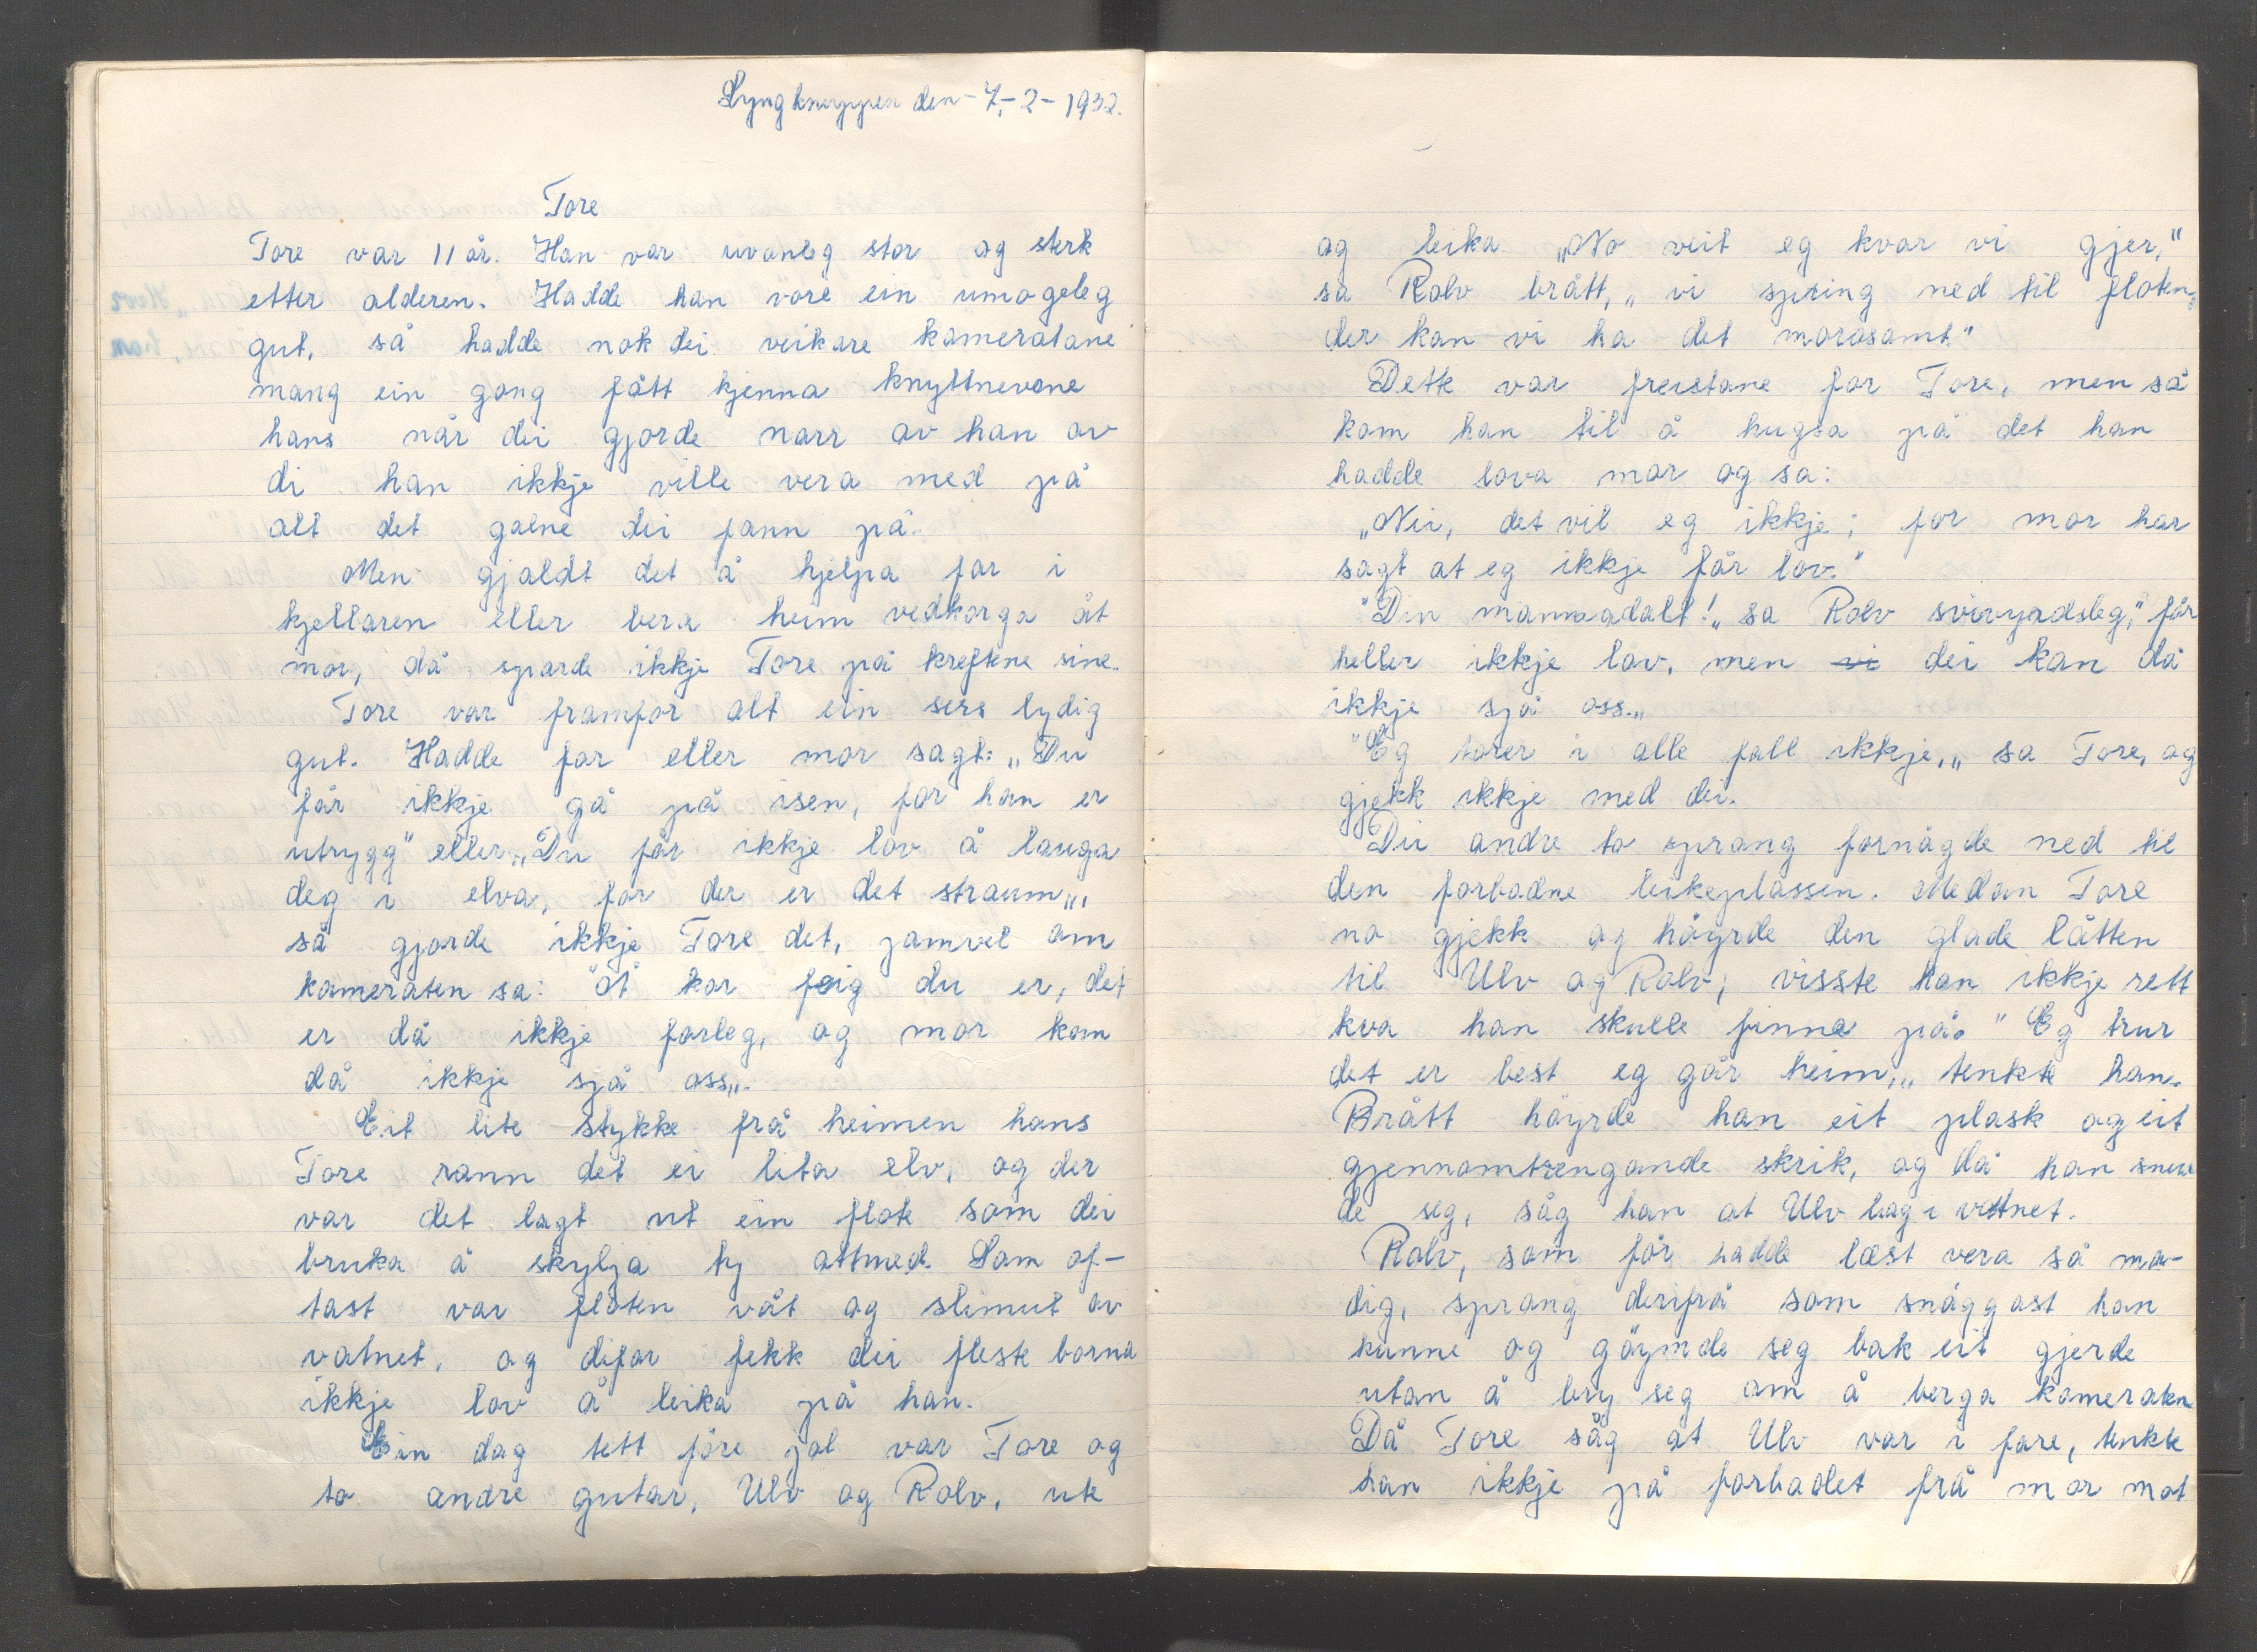 Lyngknappen den - 7.- 2 - 1932.
Tore
Tore var 11 år. Han var uvanleg stor og sterk
etter alderen. Hadde han vore ein umogeleg
gut, så hadde nok dei veikare kameratane
mang ein gong fått kjenna knyttnevane
hans når dei gjorde narr av han av
di han ikkje ville vera med på
alt det galne dei fann på.
Men gjaldt det å hjelpa far i
kjellaren eller bera heim vedkorga åt
mor, då sparde ikkje Tore på kreftene sine.
Tore var framfor alt ein sers lydig
gut. Hadde far eller mor sagt: „Du
får ikkje gå på isen, for han er
utrygg" eller „Du får ikkje lov å lauga
deg i elva, for der er det straum„,
så gjorde ikkje Tore det, jamvel om
kameraten sa: "Å kor feig du er, det
er då ikkje farleg, og mor kan
då ikkje sjå oss„.
Eit lite stykke frå heimen hans
Tore rann det ei lita elv, og der
var det lagt ut ein flote som dei
bruka å skylja ty attmed. Som of-
tast var floten våt og slimut av
vatnet, og difor fekk dei fleste borna
ikkje lov å leika på han.
Ein dag tett före jol var Tore og
to andre gutar, Ulv og Rolv, ute
og leika. „No veit eg kvar vi gjer,"
sa Rolv brått, „vi spring ned til floten,
der kan vi ha det morosamt."
Dette var freistane for Tore, men så
kom han til å hugsa på det han
hadde lova mor og sa:
„Nei, det vil eg ikkje; for mor har
sagt at eg ikkje får lov."
"Din mammadalt!„ sa Rolv svivyrdsleg," får
heller ikkje lov, men vi dei kan då
ikkje sjå oss.„
"Eg torer i alle fall ikkje,„ sa Tore, og
gjekk ikkje med dei.
Dei andre to sprang fornögde ned til
den forbodne leikeplassen. Medan Tore
no gjekk og höyrde den glade låtten
til Ulv og Rolv, visste han ikkje rett
kva han skulle finna på. "Eg trur
det er best eg går heim,„ tenkte han.
Brått höyrde han eit plask og eit
gjennomtrengande skrik, og då han snud
de seg, såg han at Ulv låg i vatnet.
Rolv, som för hadde læst vera så mo-
dig, sprang derifrå som snöggast han
kunne og göymde seg bak eit gjerde
utan å bry seg om å berga kameraten
Då Tore såg at Ulv var i fare, tenkte
han ikkje på forbodet frå mor mot